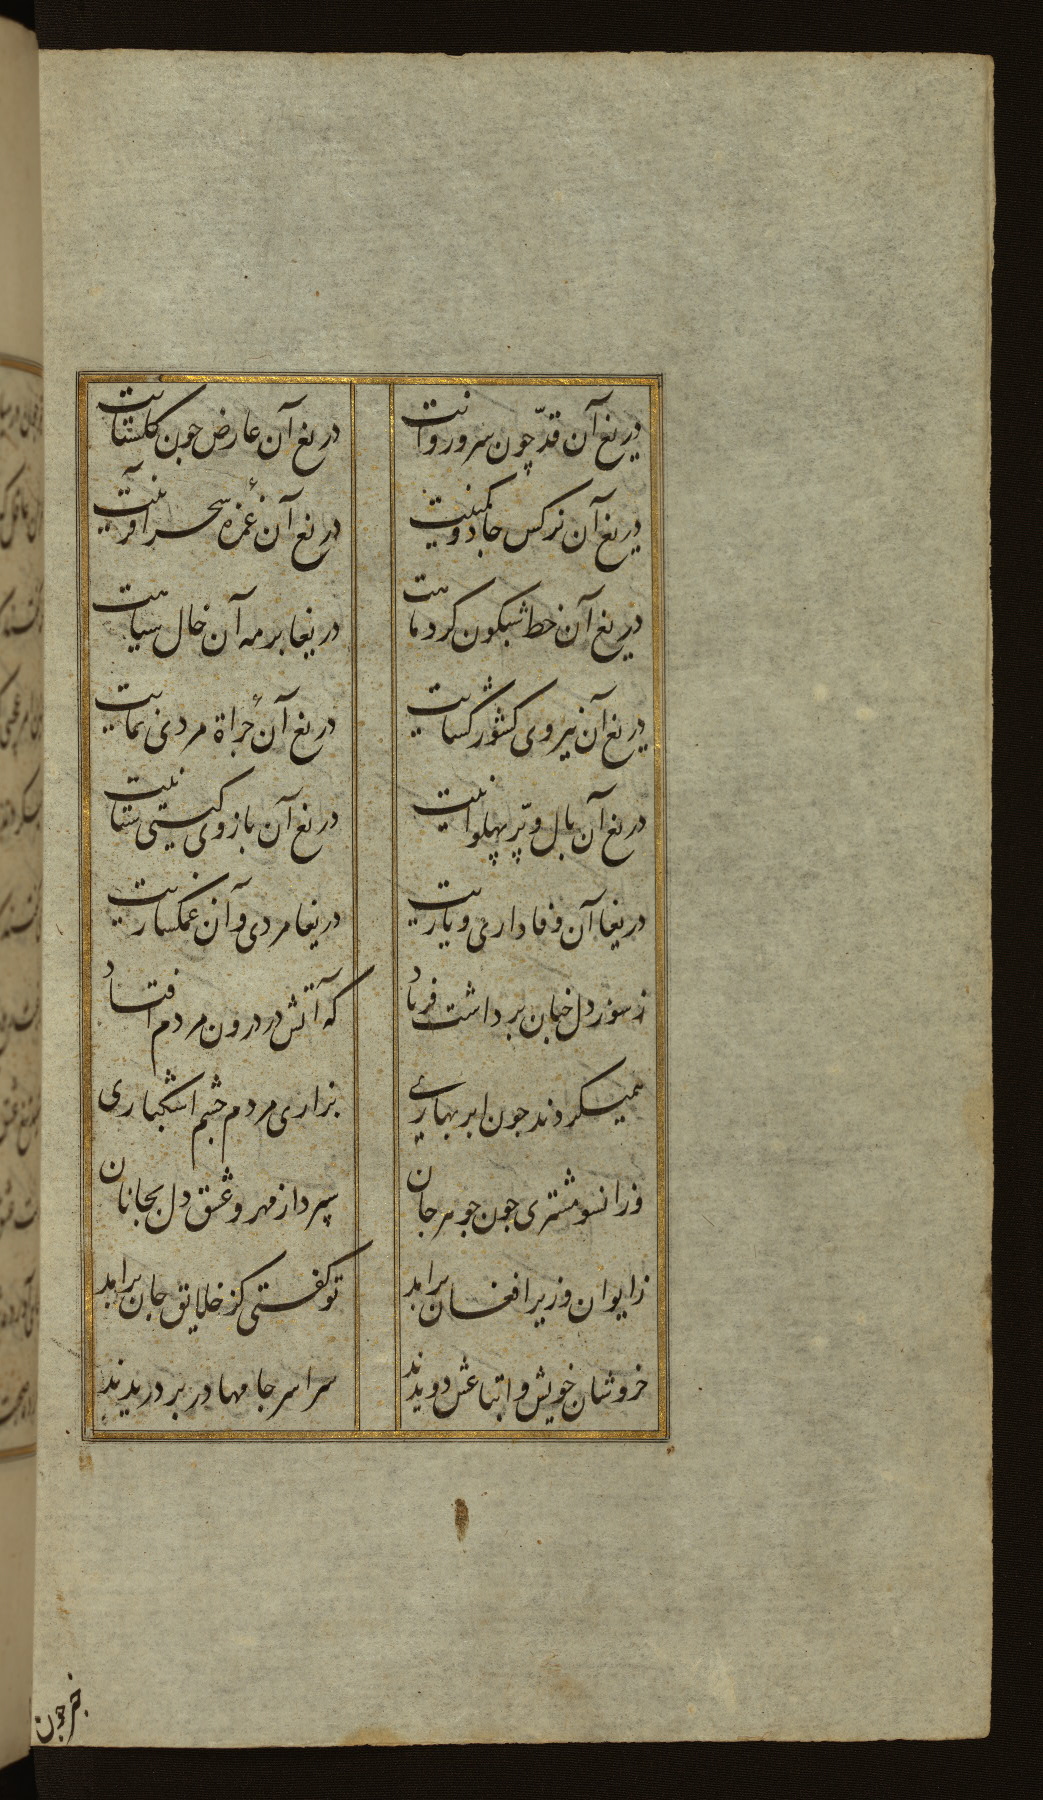 دریغ آن قدّ چون سرو روانت
دریغ آن عارض چون کلستانت
دریغ آن نرکس جادو کمینت
دریغ آن غمزهٔ سحر آفرینت
دریغ آن خط شبکون کرد ماهت
دریغا بر مه آن خال سیاهت
دریغ آن نیروی کشور کشایت
دریغ آن جرأة مردی نمایت
دریغ آن بال و پر پهلوانیت
دریغ آن بازوی کیتی ستانیت
دریغا آن وفاداری و یاریت
دریغا مردی و آن غمکساریت
ز سوز دل چنان برداشت فریاد
که آتش در درون مردم افتاد
همیکردند چون ابر بهاری
بزاری مردم چشم اشکباری
وزانسو مشتری چون جوهر جان
سپرد از مهر و عشق دل بجانان
ز ایوان وزیر افغان برامد
تو کفتی کز خلایق جان برامد
خروشان خویش و اتباعش دویدند
سراسر جامها در بر دریدند
خبر چون